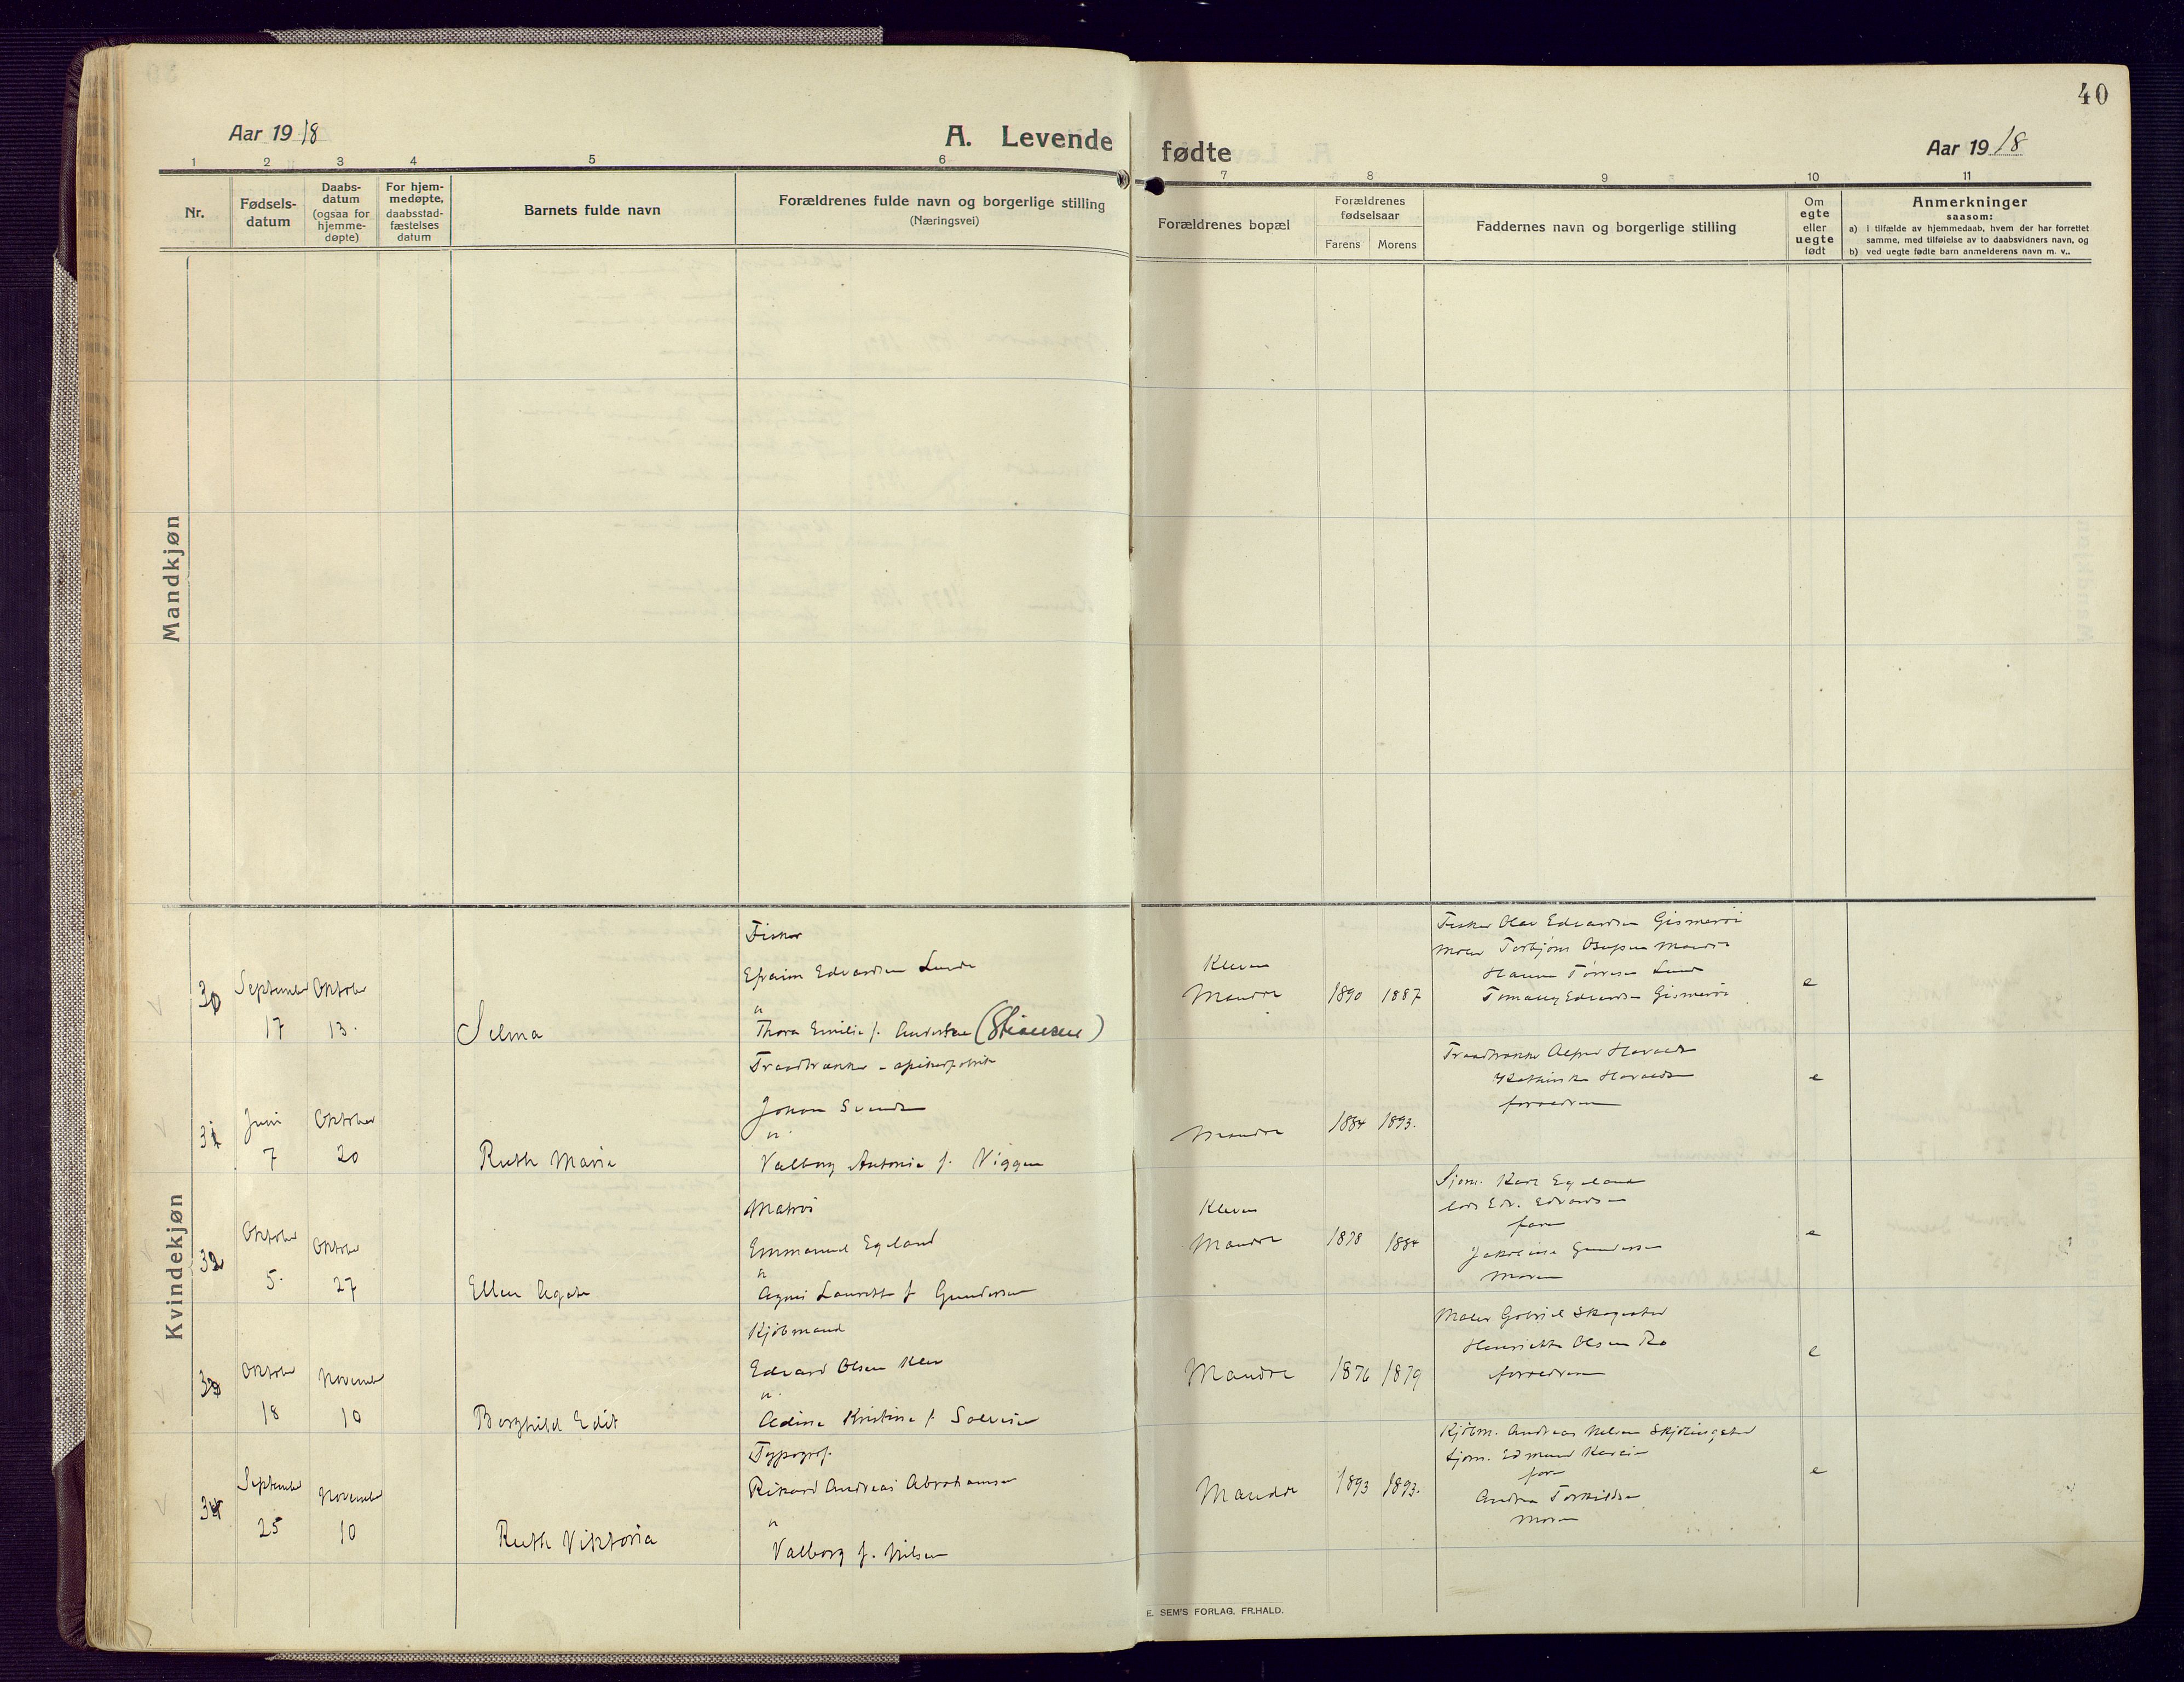 40
Aar 1918
A. Levende fødte
Aar 1918
1 2 3 4 5 6 7 8 9 10 11
Nr.
Fødsels-
datum
Daabs-
datum
(ogsaa for
hjemme-
døpte)
For hjem-
medøpte,
daabsstad-
fæstelses
datum
Barnets fulde navn
Forældrenes fulde navn og borgerlige stilling
(Næringsvei)
Forældrenes bopæl
Forældrenes
fødselsaar
Farens Morens
Faddernes navn og borgerlige stilling
Om
egte
eller
uegte
født
Anmerkninger
saasom:
a) I tilfælde av hjemmedaab, hvem der har forrettet
samme, med tilføielse av to daabsvidners navn, og
b) ved uegte fødte barn anmelderens navn m. v..
Mandkjøn
Kvindekjøn
30
September
17
Oktober
13.
Selma
Fisker
Efraim Edvardsen Lunde
Thora Emilie f. Andersen
Kleven
Mandal
1890 1887
Fisker Olav Edvardsen Gismerøi
Maler Torbjørn
Hanna Tørresen Lund
Edvardsen Gismerøi
e
31
Juni
7
Oktober
20
Ruth Marie
Johan Svendsen
Valborg Antonie f. Viggen
Mandal
1884 1893.
Alfred Haraldsen
Kathinka Haraldsen
forældrene
e
32
Oktober
5.
Oktober
27
Ellen Agate
Matros
Emmanuel Egeland
Agnes Laurette f. Gundersen
Kleven
Mandal
1878 1884
Sjøm. Karl Egeland
Lods Edv. Edvardsen
faren
Gundersen
moren
e
33
Oktober
18
November
10
Borghild Edit
Kjøbmand
Edvard Olsen Klev
Adine Kristine f. Salvesen
Mandal
1876 1879
Maler Gabriel Skogestad
Henriette Olsen
forældrene
e
34
September
25
November
10
Ruth Viktoria
Typograf.
Rikard Andreas Abrahamsen
Valborg f. Nilsen
Mandal
1893 1893.
Kjøbm. Andreas Nilsen
Sjøm. Edmund
faren
Andrea Torkildsen
moren
e
E. SEM'S FORLAG, FR.HALD.